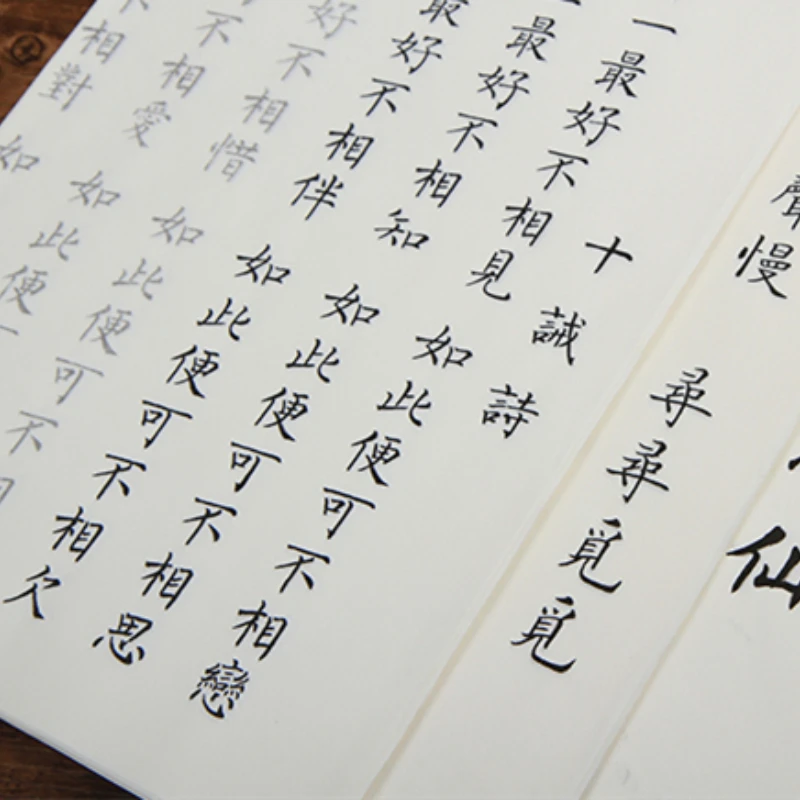 仙
聲慢
尋尋覓覓
十誡詩
一最好不相見 如此便可不相戀
最好不相知 如此便可不相思
最好不相伴 如此便可不相欠
好不相惜 如此便可不相
不相愛 如此便
不相對 如